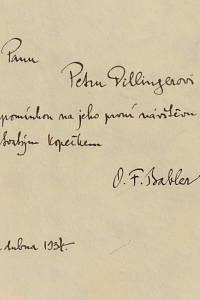 Panu
Petru Dillingerovi
pomínkou na jeho první návštěvu
Svatým Kopečkem
O. F. Babler
dubna 1938.